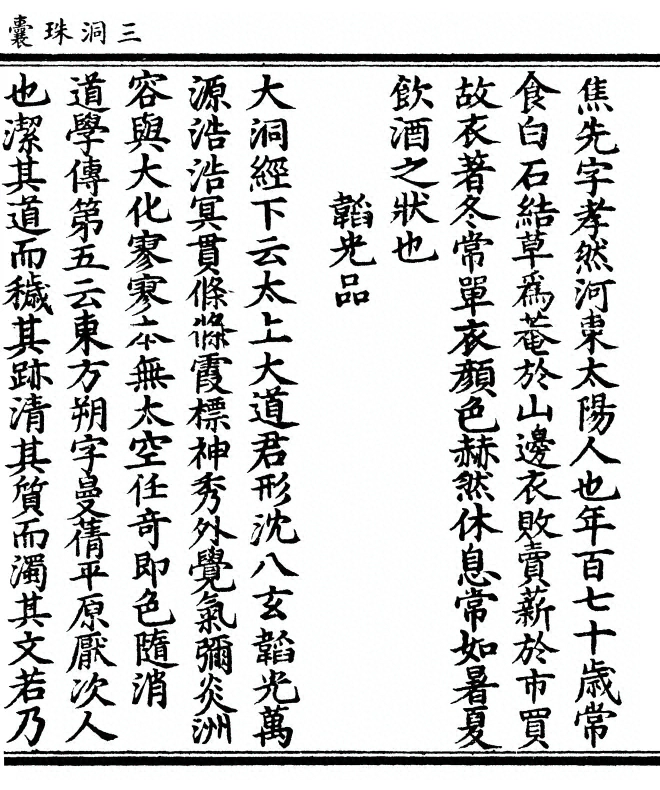 三洞珠囊
焦先字孝然河東太陽人也年百七十歲常
食白石結草爲菴於山邊衣敗賣薪於市買
故衣著冬常單衣顏色赫然休息常如暑夏
飲酒之狀也
韜光品
大洞經下云太上大道君形沈八玄韜光萬
源浩浩冥貫倏倏霞標神秀外覺氣彌炎洲
容與大化寥寥本無太空任竒即色隨消
道學傳第五云東方朔字曼蒨平原厭次人
也潔其道而穢其跡清其質而濁其文若乃